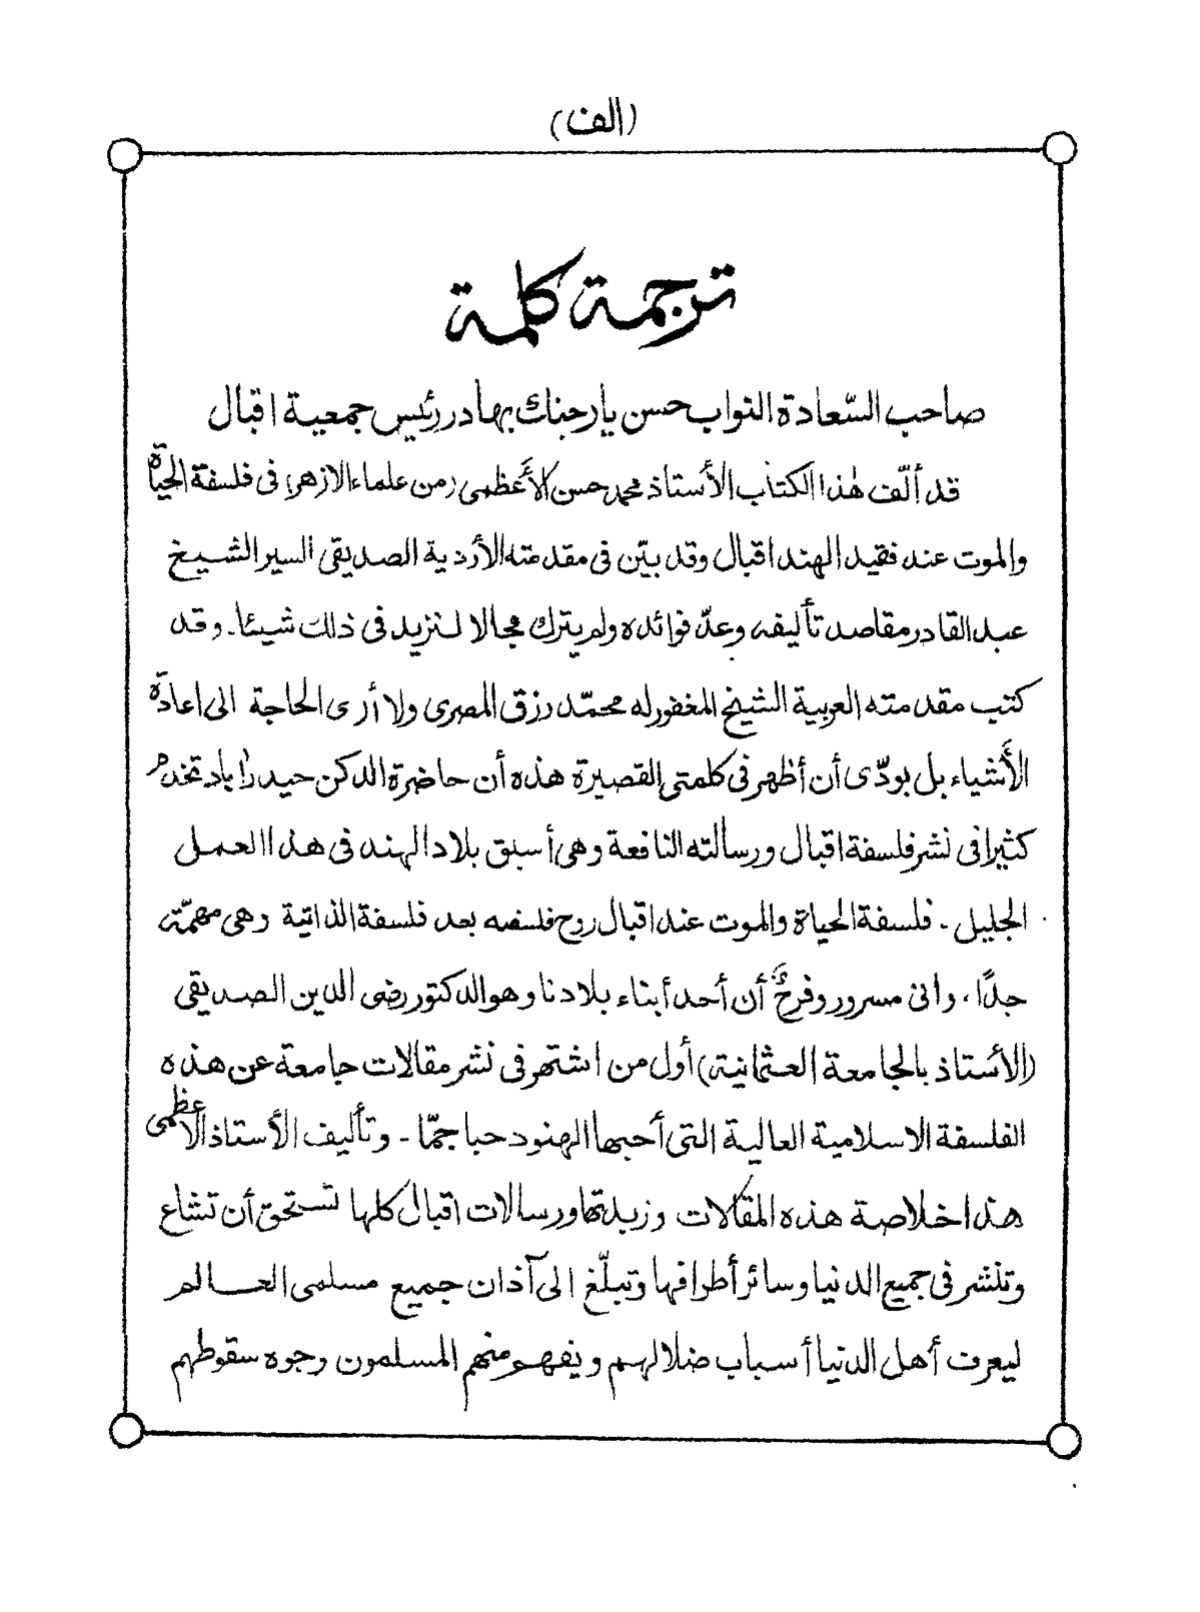 (الف)
ترجمة كلمة
صاحب السّعادة النواب حسن يار جنك بهادر رئيس جمعية اقبال
قد ألّف هٰذا الكتاب الأستاذ محمد حسن الأعظمى (من علماء الازهر) فى فلسفة الحياة
والموت عند فقيد الهند اقبال وقد بيّن فى مقدمته الأردية الصديقى السير الشيخ
عبد القادر مقاصد تأليفه وعدّ فوائده ولم يترك مجالا لنزيد فى ذلك شيئا ۔ وقد
كتب مقدمته العربية الشيخ المغفور له محمّد رزق المصرى ولا أرى الحاجة الى اعادة
الأشياء بل بودّى أن أظهر فى كلمتى القصيرة هذه أن حاضرة الدكن حيدراباد تخدم
كثيرا فى نشر فلسفة اقبال ورسالته النافعة وهى أسبق بلاد الهند فى هذا العمل
الجليل ۔ فلسفة الحياة والموت عند اقبال روح فلسفه بعد فلسفة الذاتية وهى مهمّة
جدًا، وانى مسرور وفرحٌ أن أحد أبناء بلادنا وهو الدكتور رضى الدين الصديقى
(الأستاذ بالجامعة العثمانية) أول من اشتهر فى نشر مقالات جامعة عن هذه
الفلسفة الاسلامية العالية التى أحبها الهنود حبا جمّا ۔ وتأليف الأستاذ الاعظمى
هذا خلاصة هذه المقالات وزبدتها ورسالات اقبال كلها تستحق أن تشاع
وتنشر فى جميع الدنيا وسائر أطرافها وتبلّغ الى آذان جميع مسلمى العالم
ليعرف أهل الدنيا أسباب ضلالهم ويفهم منهم المسلمون وجوه سقوطهم